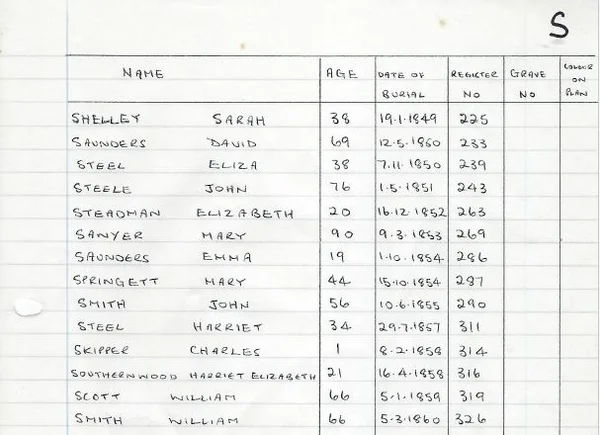 S
NAME AGE DATE OF BURIAL REGISTER NO GRAVE NO COLOUR ON PLAN
SHELLEY SARAH 38 19.1.1849 225
SAUNDERS DAVID 69 12.5.1850 233
STEEL ELIZA 38 7.11.1850 239
STEELE JOHN 76 1.5.1851 243
STEADMAN ELIZABETH 20 16.12.1852 263
SAWYER MARY 90 9.3.1853 269
SAUNDERS EMMA 19 1.10.1854 286
SPRINGETT MARY 44 15.10.1854 287
SMITH JOHN 56 10.6.1855 290
STEEL HARRIET 34 29.7.1857 311
SKIPPER CHARLES 1 8.2.1858 314
SOUTHERNWOOD HARRIET ELIZABETH 21 16.4.1858 316
SCOTT WILLIAM 66 5.1.1859 319
SMITH WILLIAM 66 5.3.1860 326